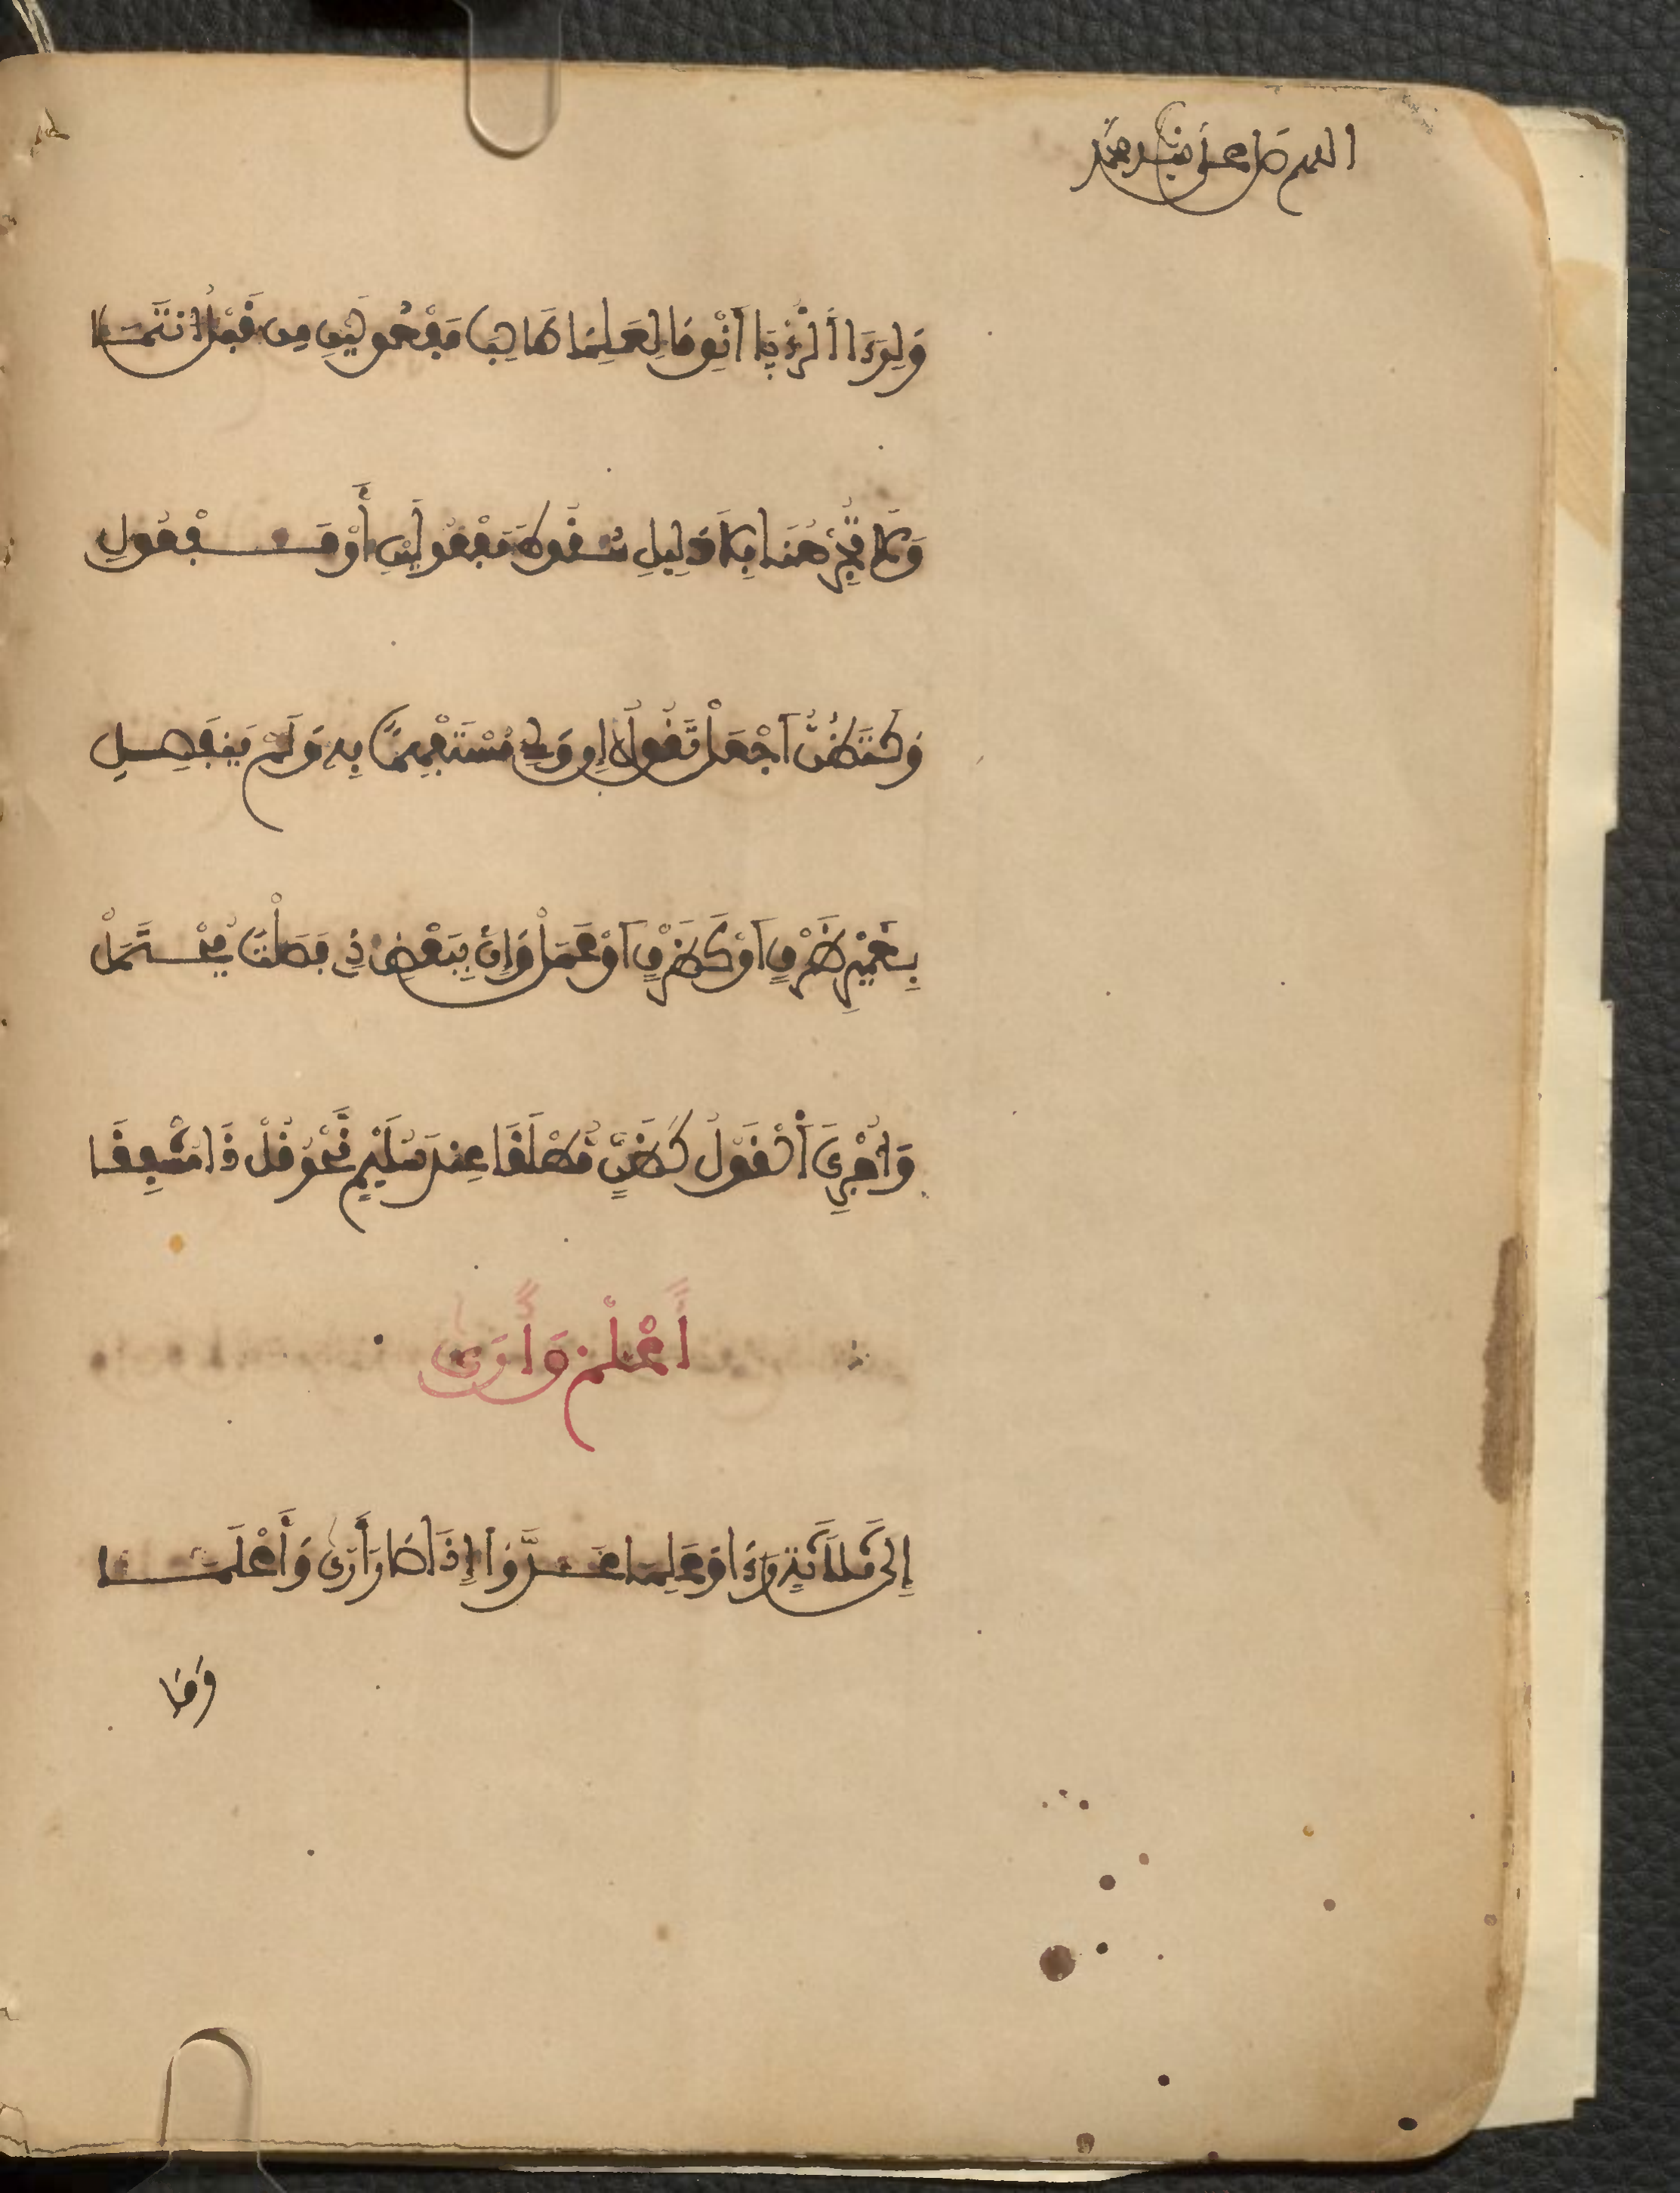 اللهم صل على سيد محمد
وَلِرَءَا الرُّءْيَا انْمِ مَا لِعَلِمَا طَالِبَ مَفْعُولَيْنِ مِن قَبْلُ انتَمَا
وَلَا تُجِزْ هُنَا بِلَا دَلِيلِ سُقُوطَ مَفْعُولَيْنِ أَوْ مَفْعُولِ
وَكَتَظُنُّ اجْعَلْ تَقُولُ إِن وَلِي مُسْتَفْهِمًا بِهِ وَلَمْ يَنفَصِلِ
بِغَيْرِ ظَرْفٍ اَوْ كَظَرْفٍ اَوْ عَمَلْ وَإِن بِبَعْضِ ذِي فَصَلْتَ يُحْتَمَلْ
وَأُجْرِيَ الْقَوْلُ كَظَنٍّ مُطْلَقَا عِندَ سُلَيْمٍ نَحْوُ قُلْ ذَا مُشْفِقَا
أَعْلَمَ وَأَرَى
إِلَى ثَلَاثَةٍ رَءَا وَعَلِمَا عَدَّوْا إِذَا صَارَا أَرَى وَأَعْلَمَا
وَمَا